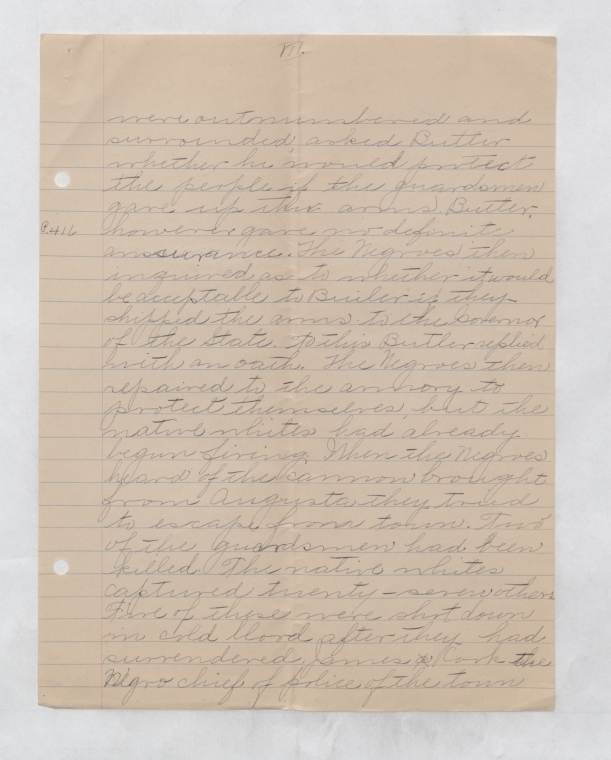 were outnumbered and
surrounded, asked Butler
whether he would protect
the people if the guardsmen
gave up their arms. Butler,
P.416 however gave no definite
assurance. The Negroes then
inquired as to whether it would
be acceptable to Butler if they
shipped the arms to the Governor
of the State. To this Butler replied
with an oath. The Negroes then
repaired to the armory to
protect themselves, but the
native whites had already
begun firing. When the Negroes
heard of the cannon brought
from Augusta they tried
to escape from town. Two
of the guardsmen had been
killed. The native whites
captured twenty-seven others
Five of these were shot down
in cold blood after they had
surrendered. James Cook the
Negro chief of police of the town